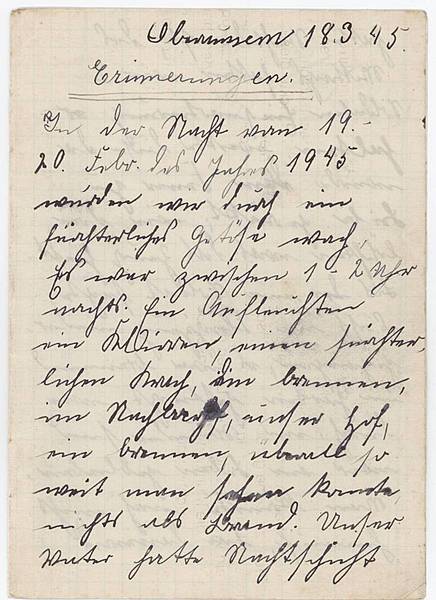 Oberaußem 18.3.45.
Erinnerungen.
In der Nacht vom 19.-
20. Febr. des Jahres 1945
wurden wir durch ein
fürchterliches Getöse wach,
Es war zwischen 1-2 Uhr
nachts. Ein Aufleuchten
ein Klirren, einen fürchter,
lichen Krach, ein brennen,
im Nachbarhof, unser Hof,
ein brennen, überall so
weit man sehen konnte
nichts als Brand. Unser
Vater hatte Nachtschicht